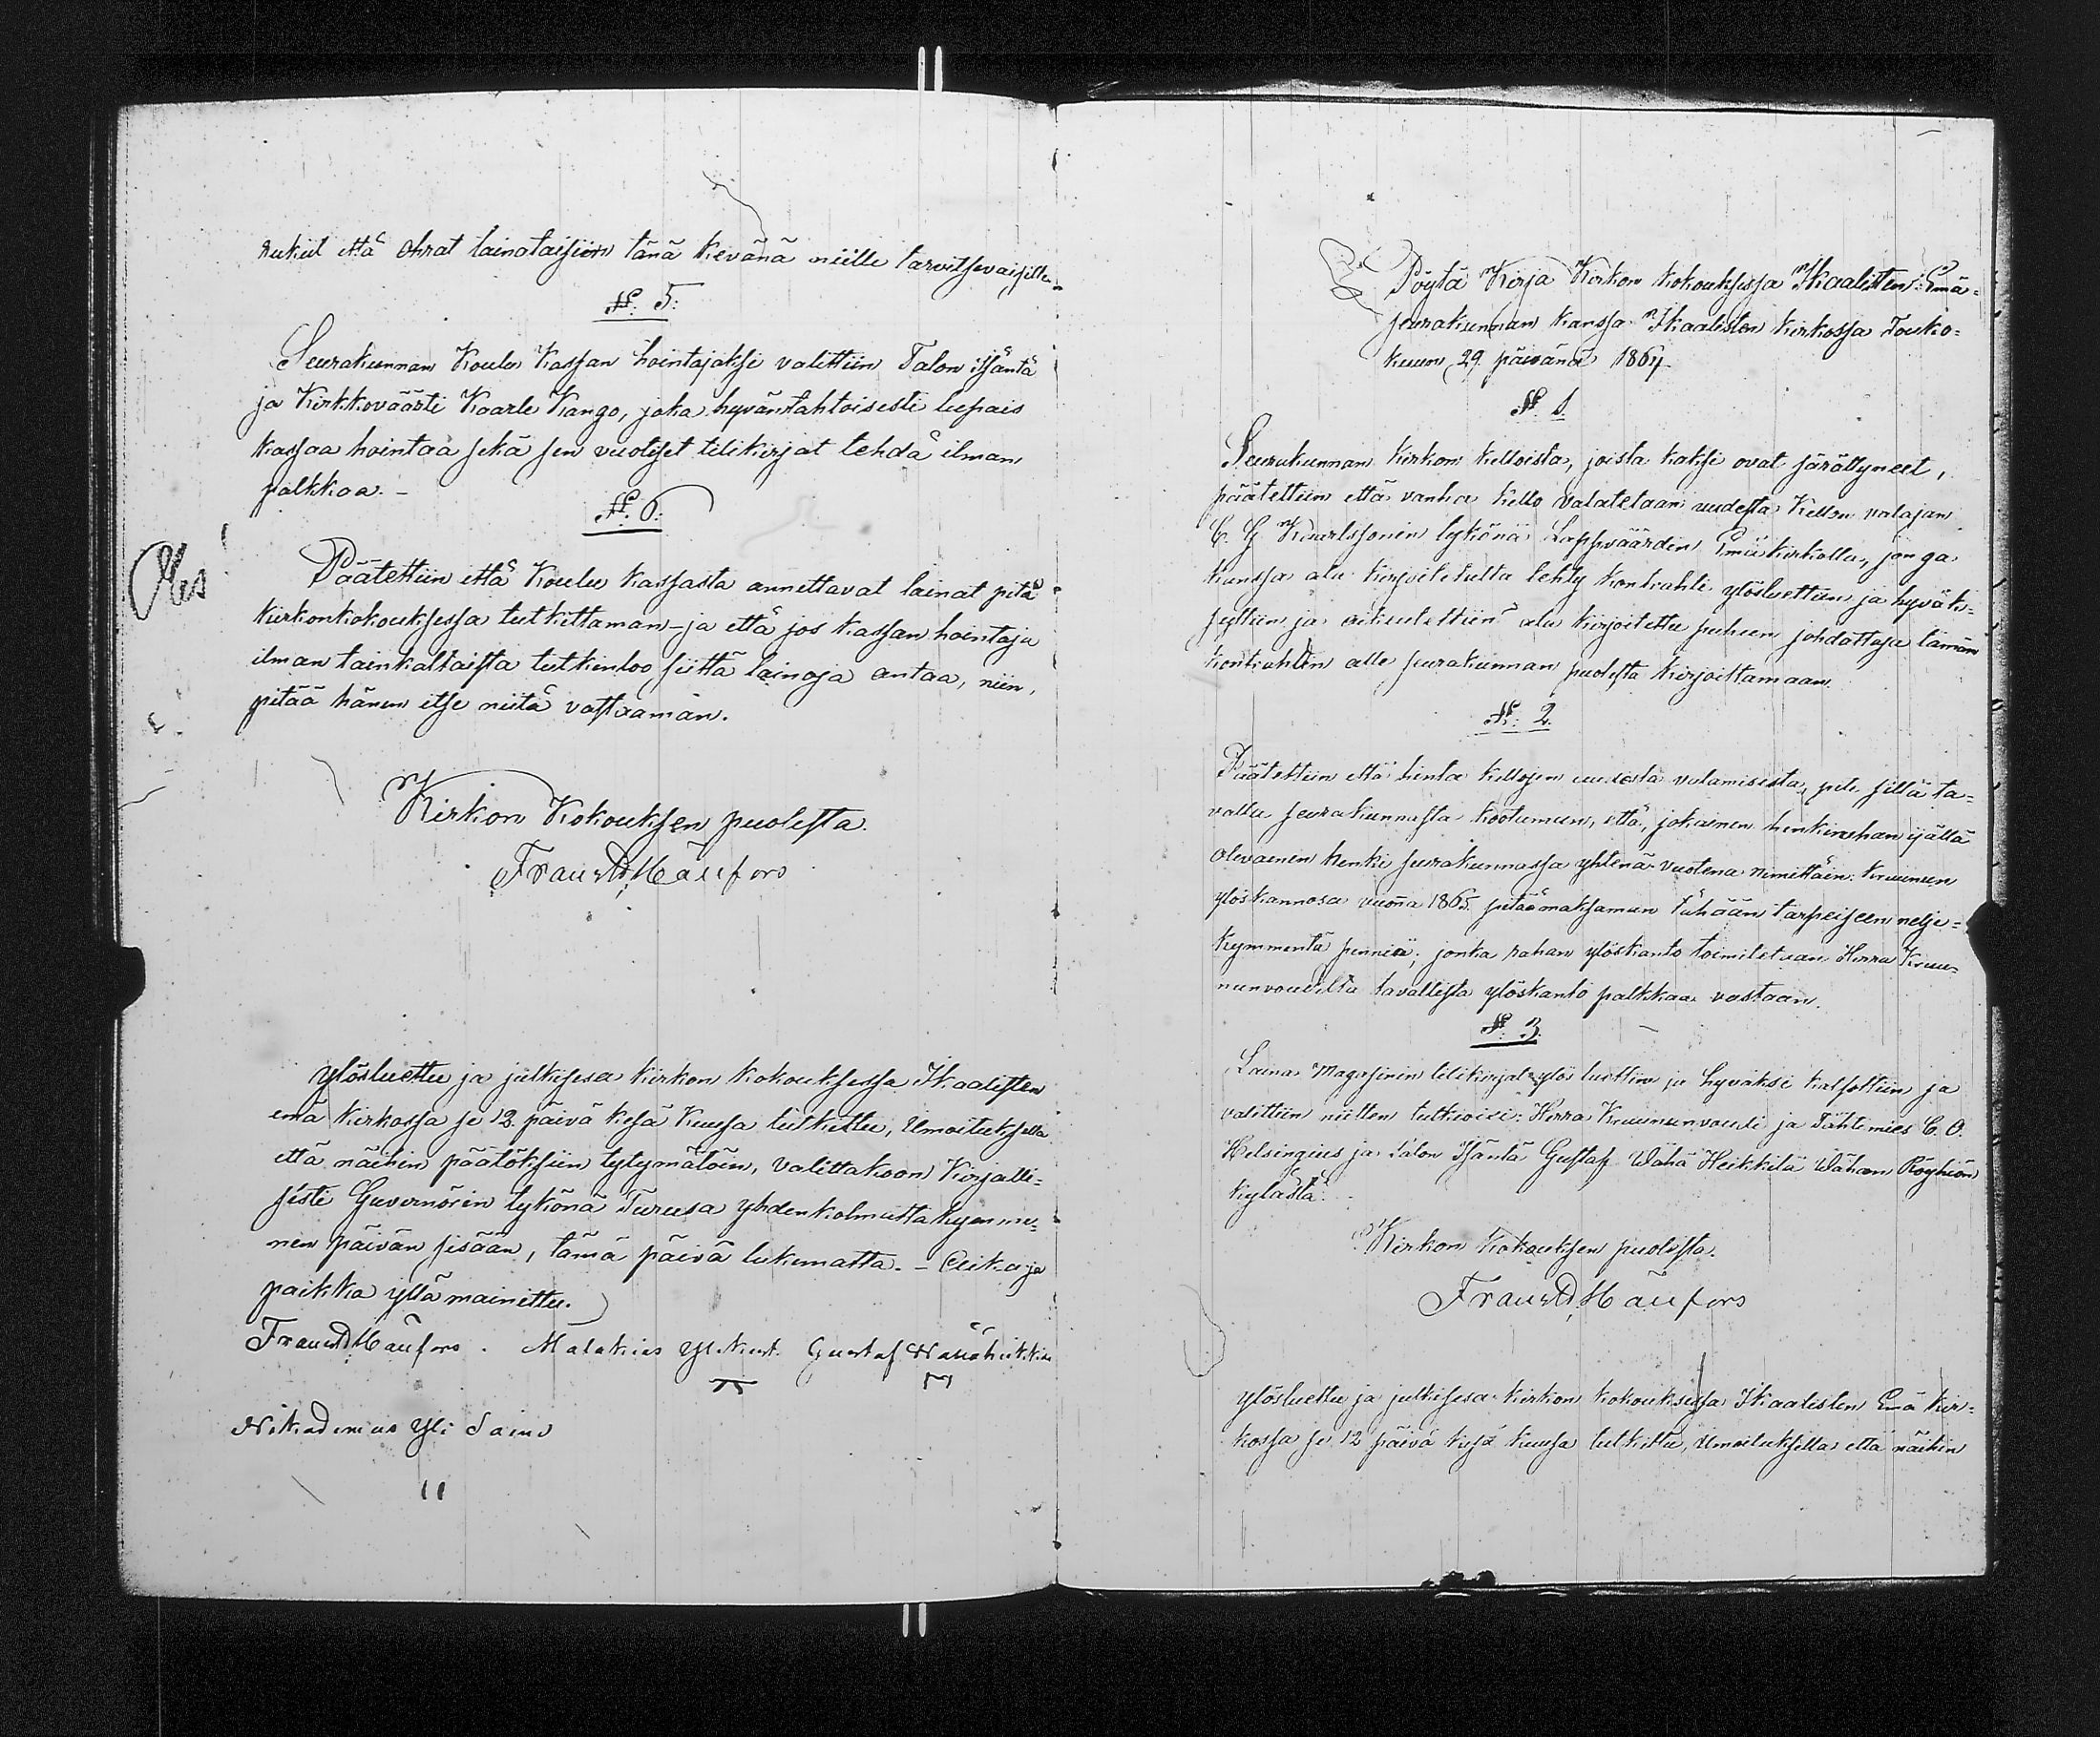 rukiit että ohrat lainataisiin tänä kevänä niille tarvitsevaisille.
N: 5:
Seurakunnan Koulu Kassan hointajaksi valittiin Talon Isäntä
ja Kirkkoväärti Kaarle Kango, joka hyväntahtoisesti lupais
kassaa hointaa sekä sen vuotiset tilikirjat tehdä ilman
palkkaa. –
N: 6:
Obs!
Päätettiin että Koulu kassasta annettavat lainat pitä
kirkonkokouksessa tutkittaman – ja että jos kassan hointaja
ilman tainkaltaista tutkintoo siittä lainoja antaa, niin
pitää hänen itse niitä vastaaman.
Kirkon Kokouksen puolesta.
Frans Mäufors
Ylösluettu ja julkisesa kirkon kokouksessa Ikaalisten
emä kirkossa se 12. päivä kesä Kuusa tutkittu, Ilmoituksella
että näihin päätöksiin tytymätöin, valittakoon Kirjalli=
sesti Guvernörin tykönä Turusa yhdenkolmatta kymme=
nen päivän sisään, tämä päivä lukematta. – Aika ja
paikka yllä mainittu.
Frans Mäufors. Malakias Gustaf Wähäheikkilä
Nikademus Yli Saini
Pöytä Kirja Kirkon kokouksessa Ikaalisten Emä=
seurakunnan kanssa Ikaalisten kirkossa Touko=
kuun 29. päivänä 1864
N 1.
Seurakunnan kirkon kelloista, joista kaksi ovat särättyneet,
päätettiin että vanha kello valatetaan uudesta Kellon valajan
C. G. Kaarlssonin tykönä Lappväärdin Emäkirkolla, jonga
kanssa ala kirjoitetulta tehty kontrahti ylösluettiin ja hyväk=
syttiin ja oikeutettiin ala kirjoitettu puheen johdattaja tämän
kontrahdin alle seurakunnan puolesta kirjoittamaan.
N: 2.
Päätettiin että hinta kellojen uudesta valamisesta, pitä sillä ta=
valla seurakunnasta kootuman, että, jokainen henkirahan ijällä
olevainen henki seurakunnassa yhtenä vuotena nimittäin: Kruunun
ylöskannosa vuonna 1865. pitää maksaman Tähään tarpeiseen nelje=
kymmentä penniä; jonka rahan ylöskanto toimitetaan Herra Kruu=
nunvoudilta tavallista ylöskanto palkkaa vastaan.
N: 3.
Laina Magasinin tilikirjat ylös luettiin ja hyväksi katsottiin ja
valittiin niitten tutkioixi: Herra Kruununvouti ja Tähtimies C. O.
Helsingius ja Talon Isäntä Gustaf Wähä Heikkilä Wähän Röyhiön
kylästä.
Kirkon Kokouksen puolesta.
Frans Mäufors
Ylösluettu ja julkisesa kirkon kokouksessa Ikaalisten Emä kir=
kossa se 12 päivä kesä kuusa tutkittu, Ilmoituksella että näihin